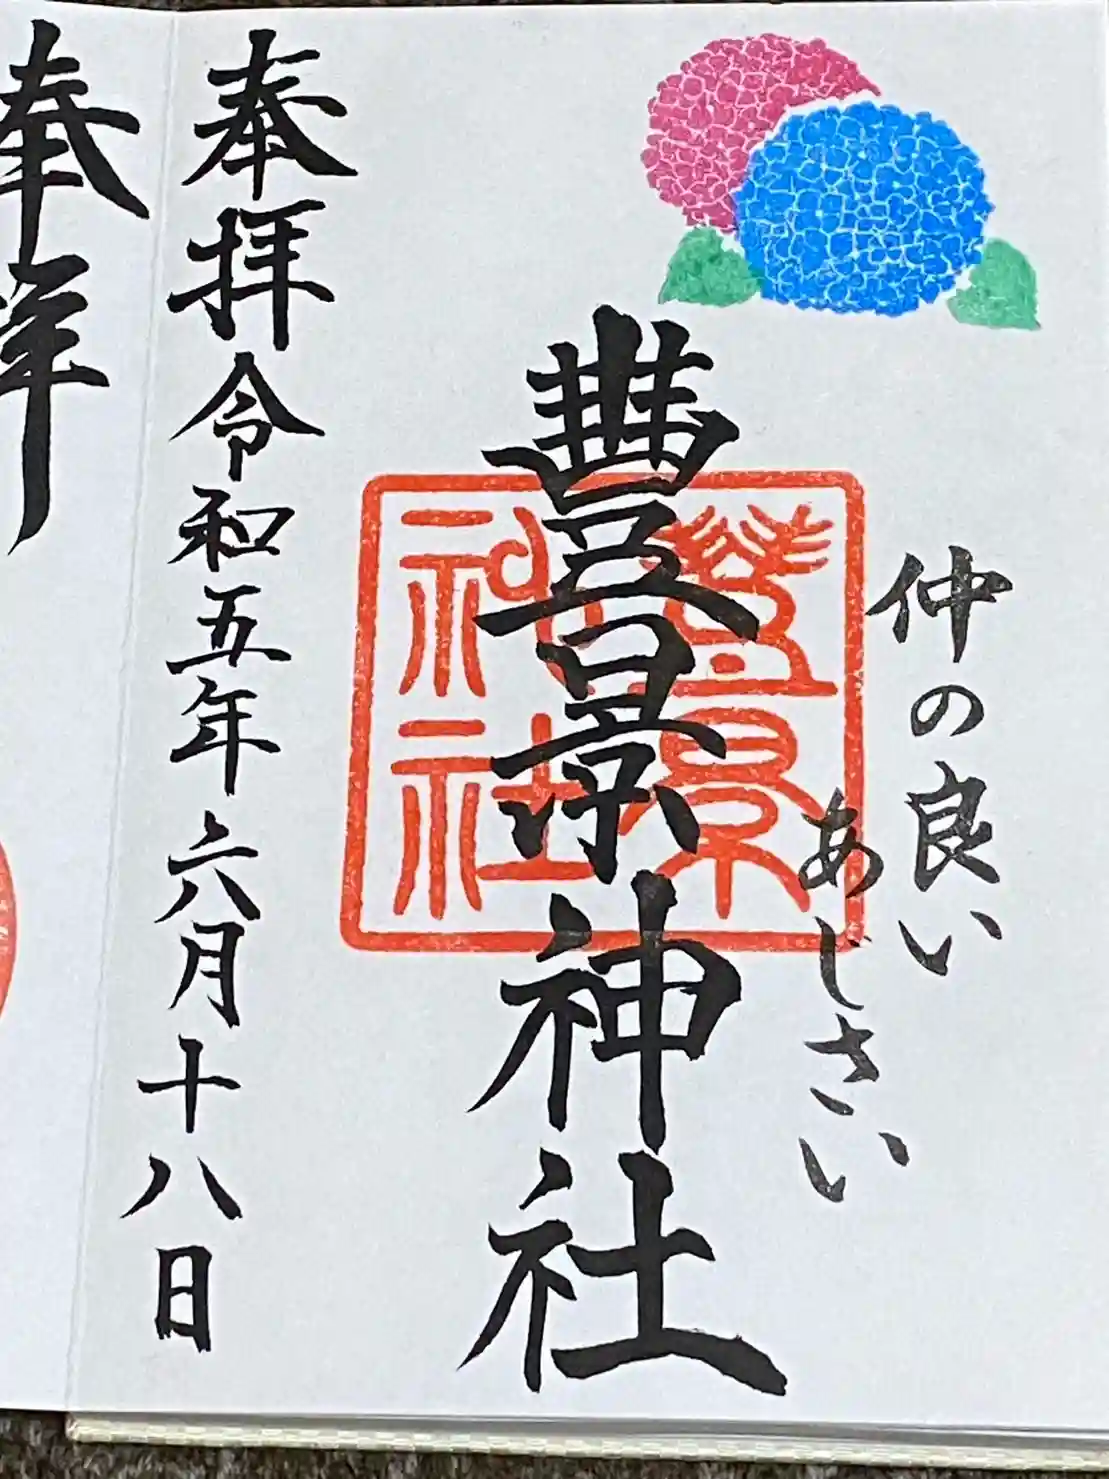 仲の良い
あじさい
豐景神社
豊景神社
奉拝 令和五年六月十八日
奉拝